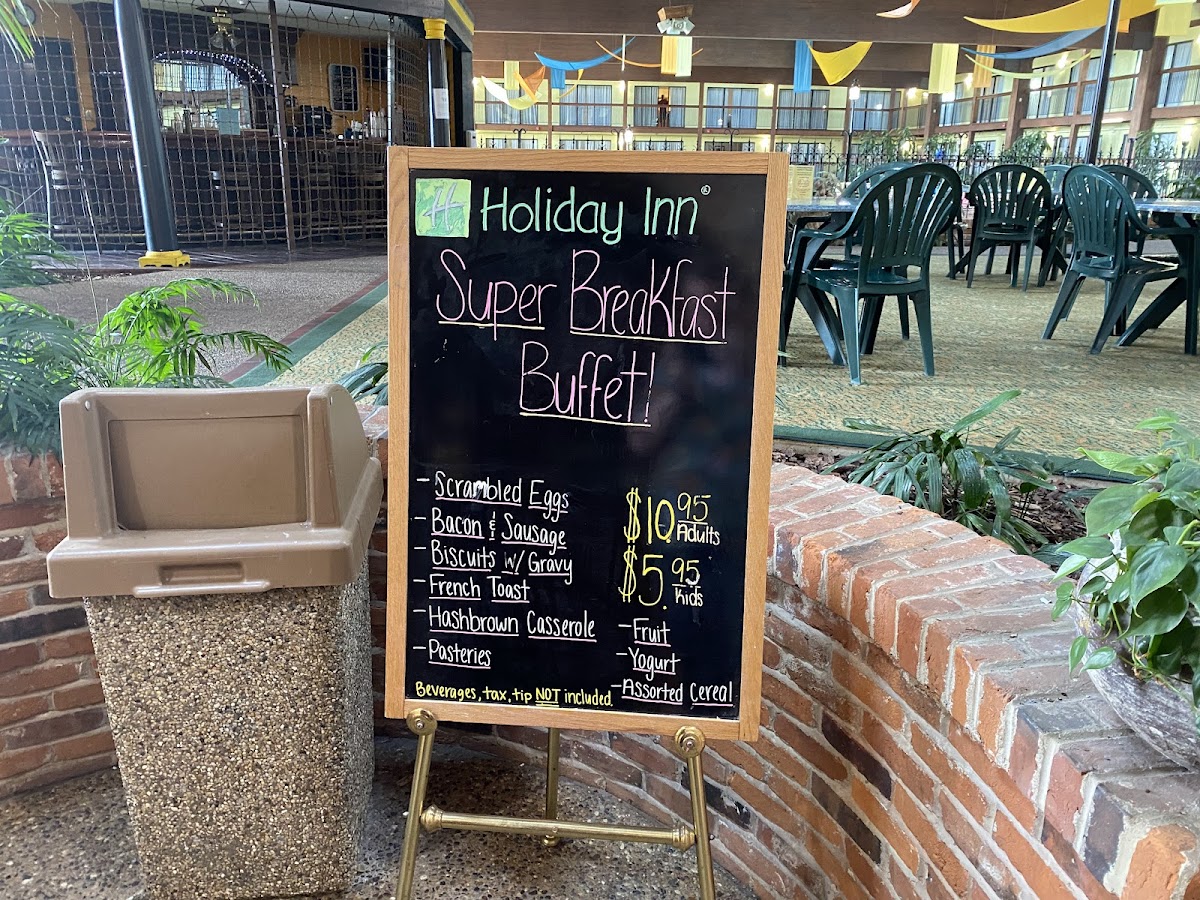 H Holiday Inn®
Super Breakfast
Buffet!
- Scrambled Eggs
- Bacon & Sausage
- Biscuits w/ Gravy
- French Toast
- Hashbrown Casserole
- Pasteries
$10 95 Adults
$5. 95 Kids
- Fruit
- Yogurt
- Assorted Cereal
Beverages, tax, tip NOT included.